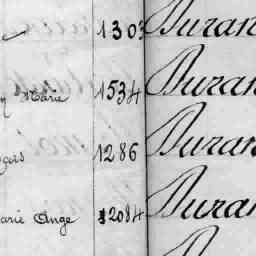 1303 Duran
Marie 1534 Duran
1286 Duran
arie Ange 2084 Duran